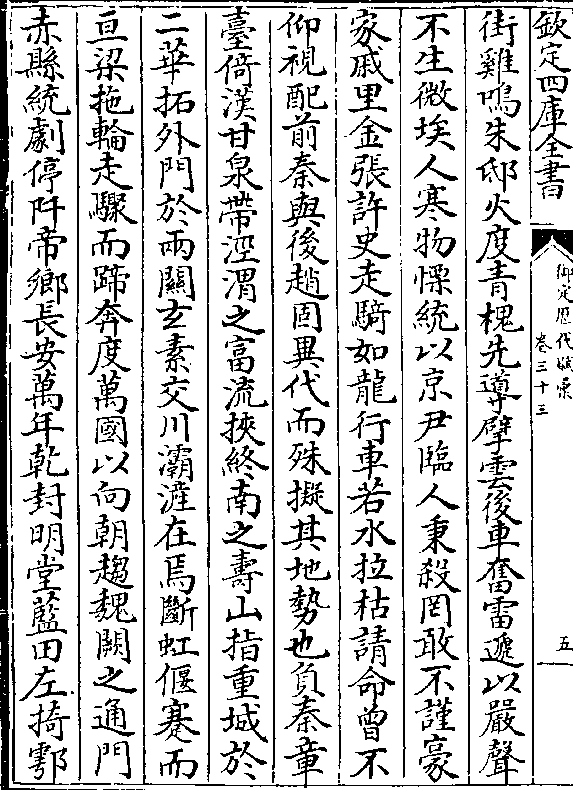 欽定四庫全書
御定歷代賦彙
卷三十三
五
街雞鳴朱邸火度青槐先導擘雲後車奮雷遞以嚴聲
不生微埃人寒物慄統以京尹臨人秉殺罔敢不謹豪
家戚里金張許史走騎如龍行車若水拉枯請命曾不
仰視配前秦與後趙固異代而殊擬其地勢也負秦章
臺倚漢甘泉帶涇渭之富流挾終南之壽山指重城於
二華拓外門於兩關玄素交川灞滻在焉斷虹偃蹇而
亘梁拖輪走驟而蹄奔度萬國以向朝趨魏闕之通門
赤縣統劇停阡帝鄉長安萬年乾封明堂藍田左掎鄠